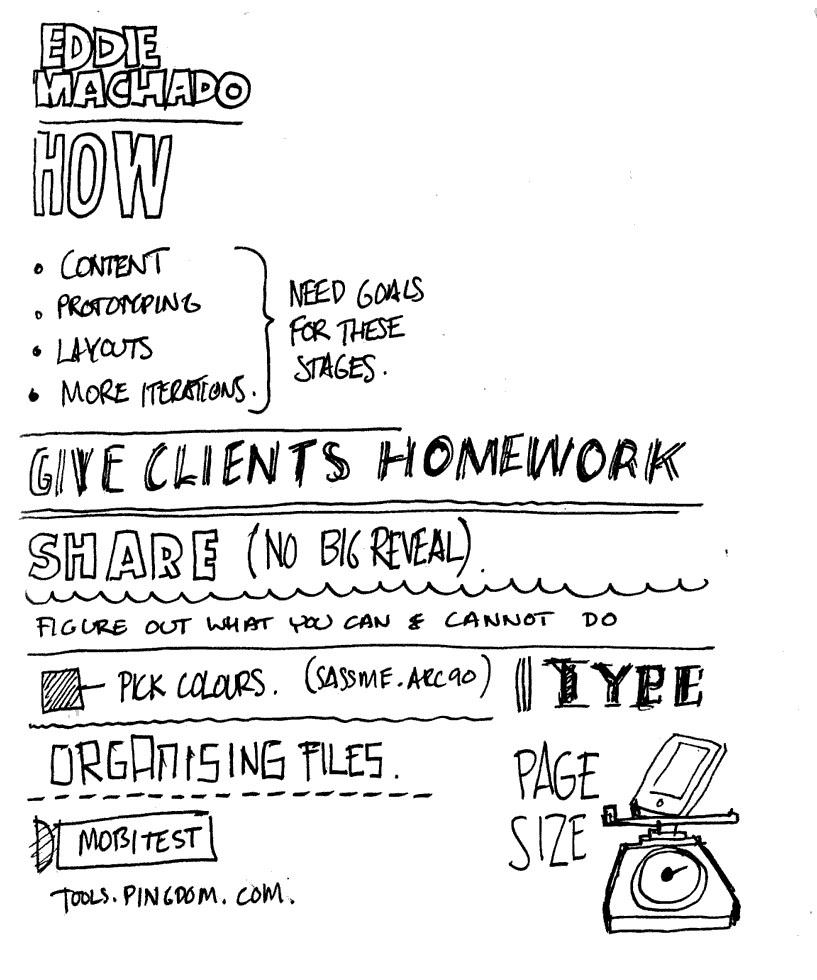 EDDIE
MACHADO
HOW
• CONTENT
• PROTOTYPING
• LAYOUTS
• MORE ITERATIONS.
NEED GOALS
FOR THESE
STAGES.
GIVE CLIENTS HOMEWORK
SHARE (NO BIG REVEAL).
FIGURE OUT WHAT YOU CAN & CANNOT DO
PICK COLOURS. (SASSME.ARC90)
TYPE
ORGANISING FILES.
PAGE
SIZE
MOBITEST
TOOLS.PINGDOM.COM.